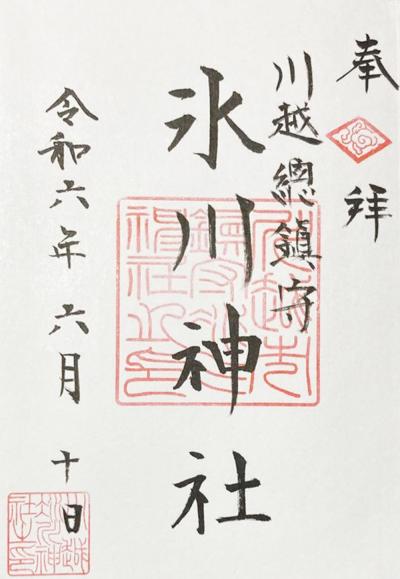 奉拝
川越總鎮守
氷川神社
令和六年六月十日